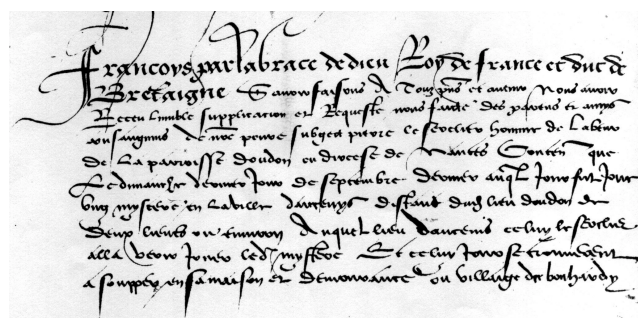 Francoys par la grace de dieu Roy de france et duc de
Bretaigne Savoir faisons A Tous pns et avenir Nous avoir
Receu lumble supplication et Requeste nous faicte des parens et amys
consanguins de nre povre subgect pierre le serclier homme de labeur
de la parroisse doudon ou diocese de Nantes Conten que
Le dimanche dernier jour de septembre dernier auql jour fut joue
ung mystere en la ville dancenys distant dud lieu doudon de
deux lieues ou environ Auquel lieu dancenis celuy le serclier
alla veoir jouer led mystere Et celuy jour se trouverent
a soupper en sa maison et demourance ou villaige de bonhardy